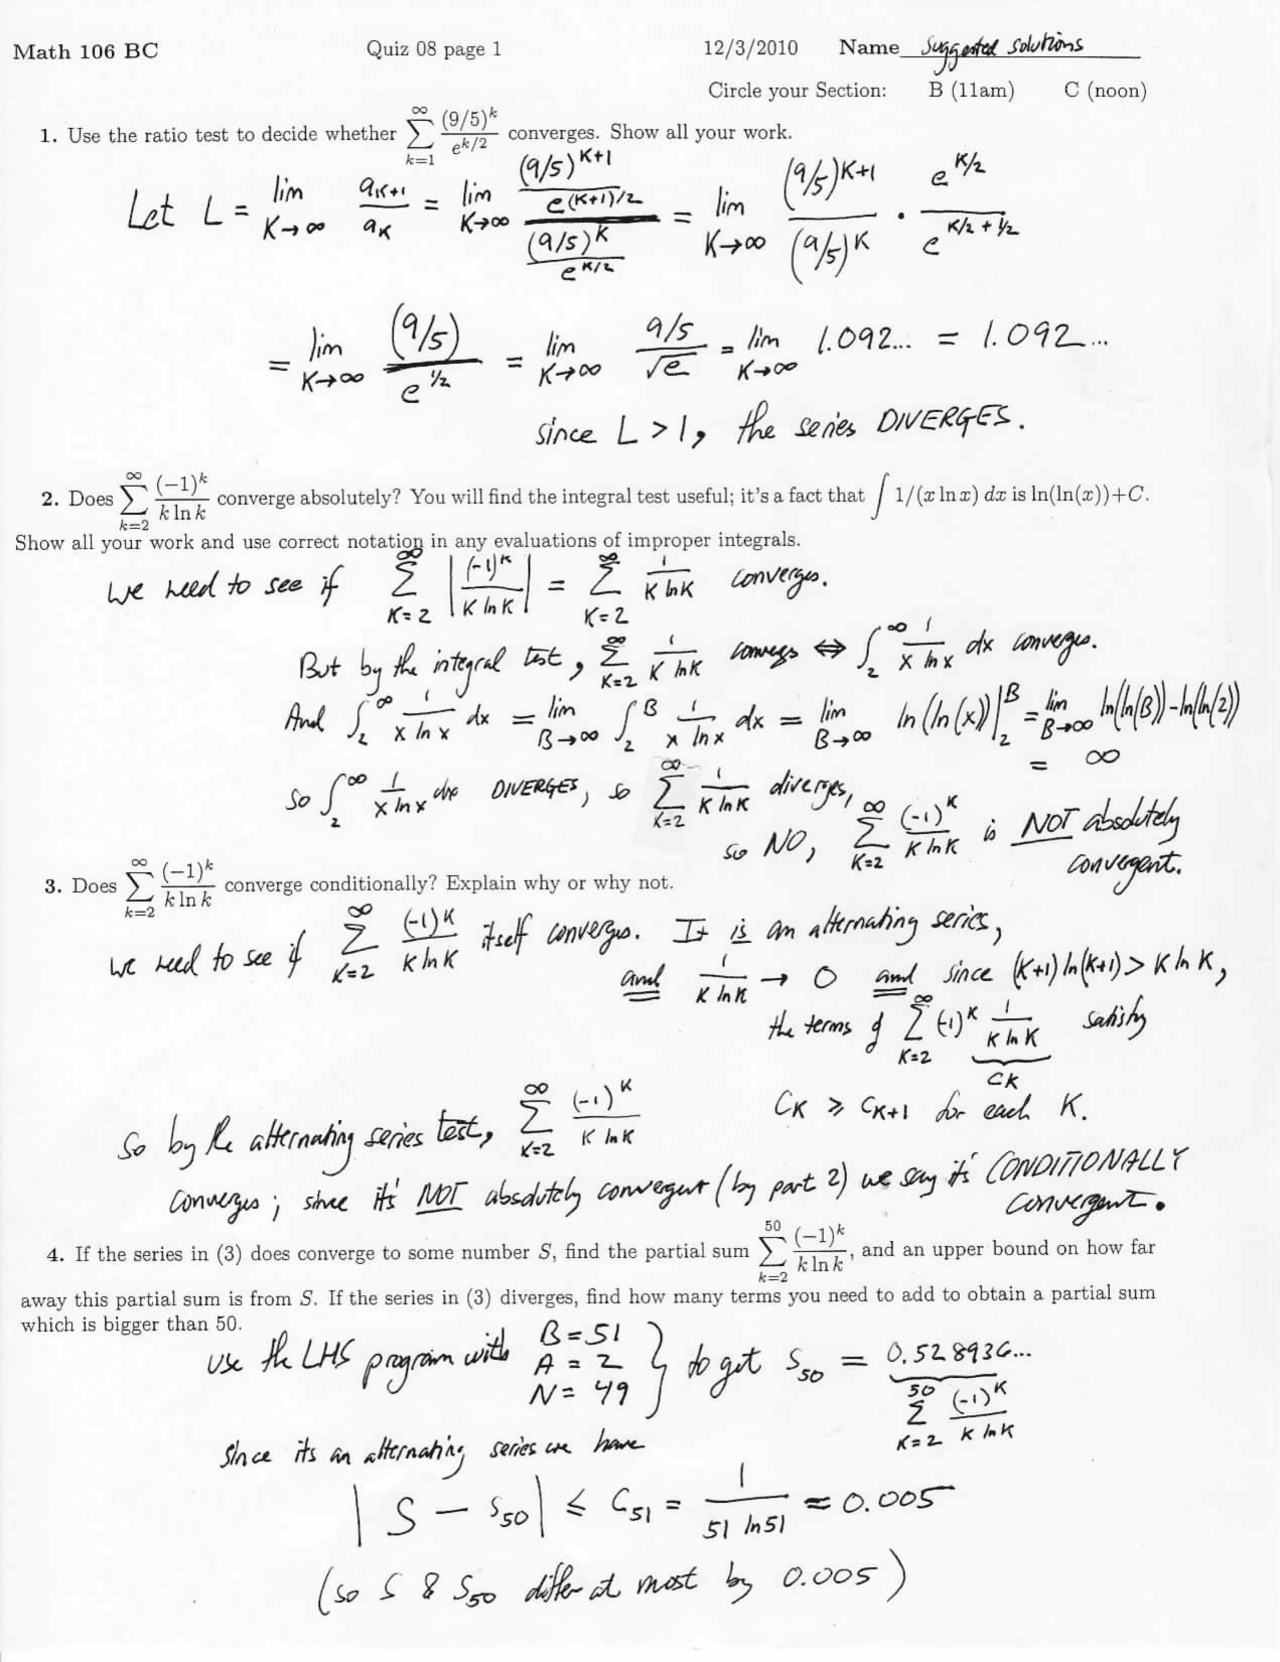 Math 106 BC Quiz 08 page 1 12/3/2010 Name Suggested solutions
Circle your Section: B (11am) C (noon)
1. Use the ratio test to decide whether ∑_{k=1}^{∞} (9/5)^k / e^{k/2} converges. Show all your work.
Let L = lim_{K→∞} a_{K+1}/a_K = lim_{K→∞} ((9/5)^{K+1} / e^{(K+1)/2}) / ((9/5)^K / e^{K/2}) = lim_{K→∞} (9/5)^{K+1}/(9/5)^K · e^{K/2} / e^{K/2 + 1/2}
= lim_{K→∞} (9/5) / e^{1/2} = lim_{K→∞} 9/5 / √e = lim_{K→∞} 1.092... = 1.092...
since L > 1, the series DIVERGES.
2. Does ∑_{k=2}^{∞} (−1)^k / (k ln k) converge absolutely? You will find the integral test useful; it's a fact that ∫ 1/(x ln x) dx is ln(ln(x))+C.
Show all your work and use correct notation in any evaluations of improper integrals.
We need to see if ∑_{K=2}^{∞} |(-1)^K / (K ln K)| = ∑_{K=2}^{∞} 1/(K ln K) converges.
But by the integral test, ∑_{K=2}^{∞} 1/(K ln K) converges ⇔ ∫_2^∞ 1/(x ln x) dx converges.
And ∫_2^∞ 1/(x ln x) dx = lim_{B→∞} ∫_2^B 1/(x ln x) dx = lim_{B→∞} ln(ln(x))|_2^B = lim_{B→∞} ln(ln(B)) - ln(ln(2))
= ∞
so ∫_2^∞ 1/(x ln x) dx DIVERGES, so ∑_{K=2}^{∞} 1/(K ln K) diverges,
so NO, ∑_{K=2}^{∞} (-1)^K / (K ln K) is NOT absolutely
convergent.
3. Does ∑_{k=2}^{∞} (−1)^k / (k ln k) converge conditionally? Explain why or why not.
We need to see if ∑_{K=2}^{∞} (-1)^K / (K ln K) itself converges. It is an alternating series,
and 1/(K ln K) → 0 and since (K+1) ln(K+1) > K ln K,
the terms of ∑_{K=2}^{∞} (-1)^K 1/(K ln K) satisfy
C_K
C_K ⩾ C_{K+1} for each K.
So by the alternating series test, ∑_{K=2}^{∞} (-1)^K / (K ln K)
converges; since it's NOT absolutely convergent (by part 2) we say it's CONDITIONALLY
convergent.
4. If the series in (3) does converge to some number S, find the partial sum ∑_{k=2}^{50} (−1)^k / (k ln k), and an upper bound on how far
away this partial sum is from S. If the series in (3) diverges, find how many terms you need to add to obtain a partial sum
which is bigger than 50.
Use the LHS program with B = 51
A = 2
N = 49
} to get S_50 = 0.528936...
∑_{K=2}^{50} (-1)^K / (K ln K)
Since its an alternating series we have
|S - S_50| ≤ C_51 = 1/(51 ln 51) ≈ 0.005
(so S & S_50 differ at most by 0.005)